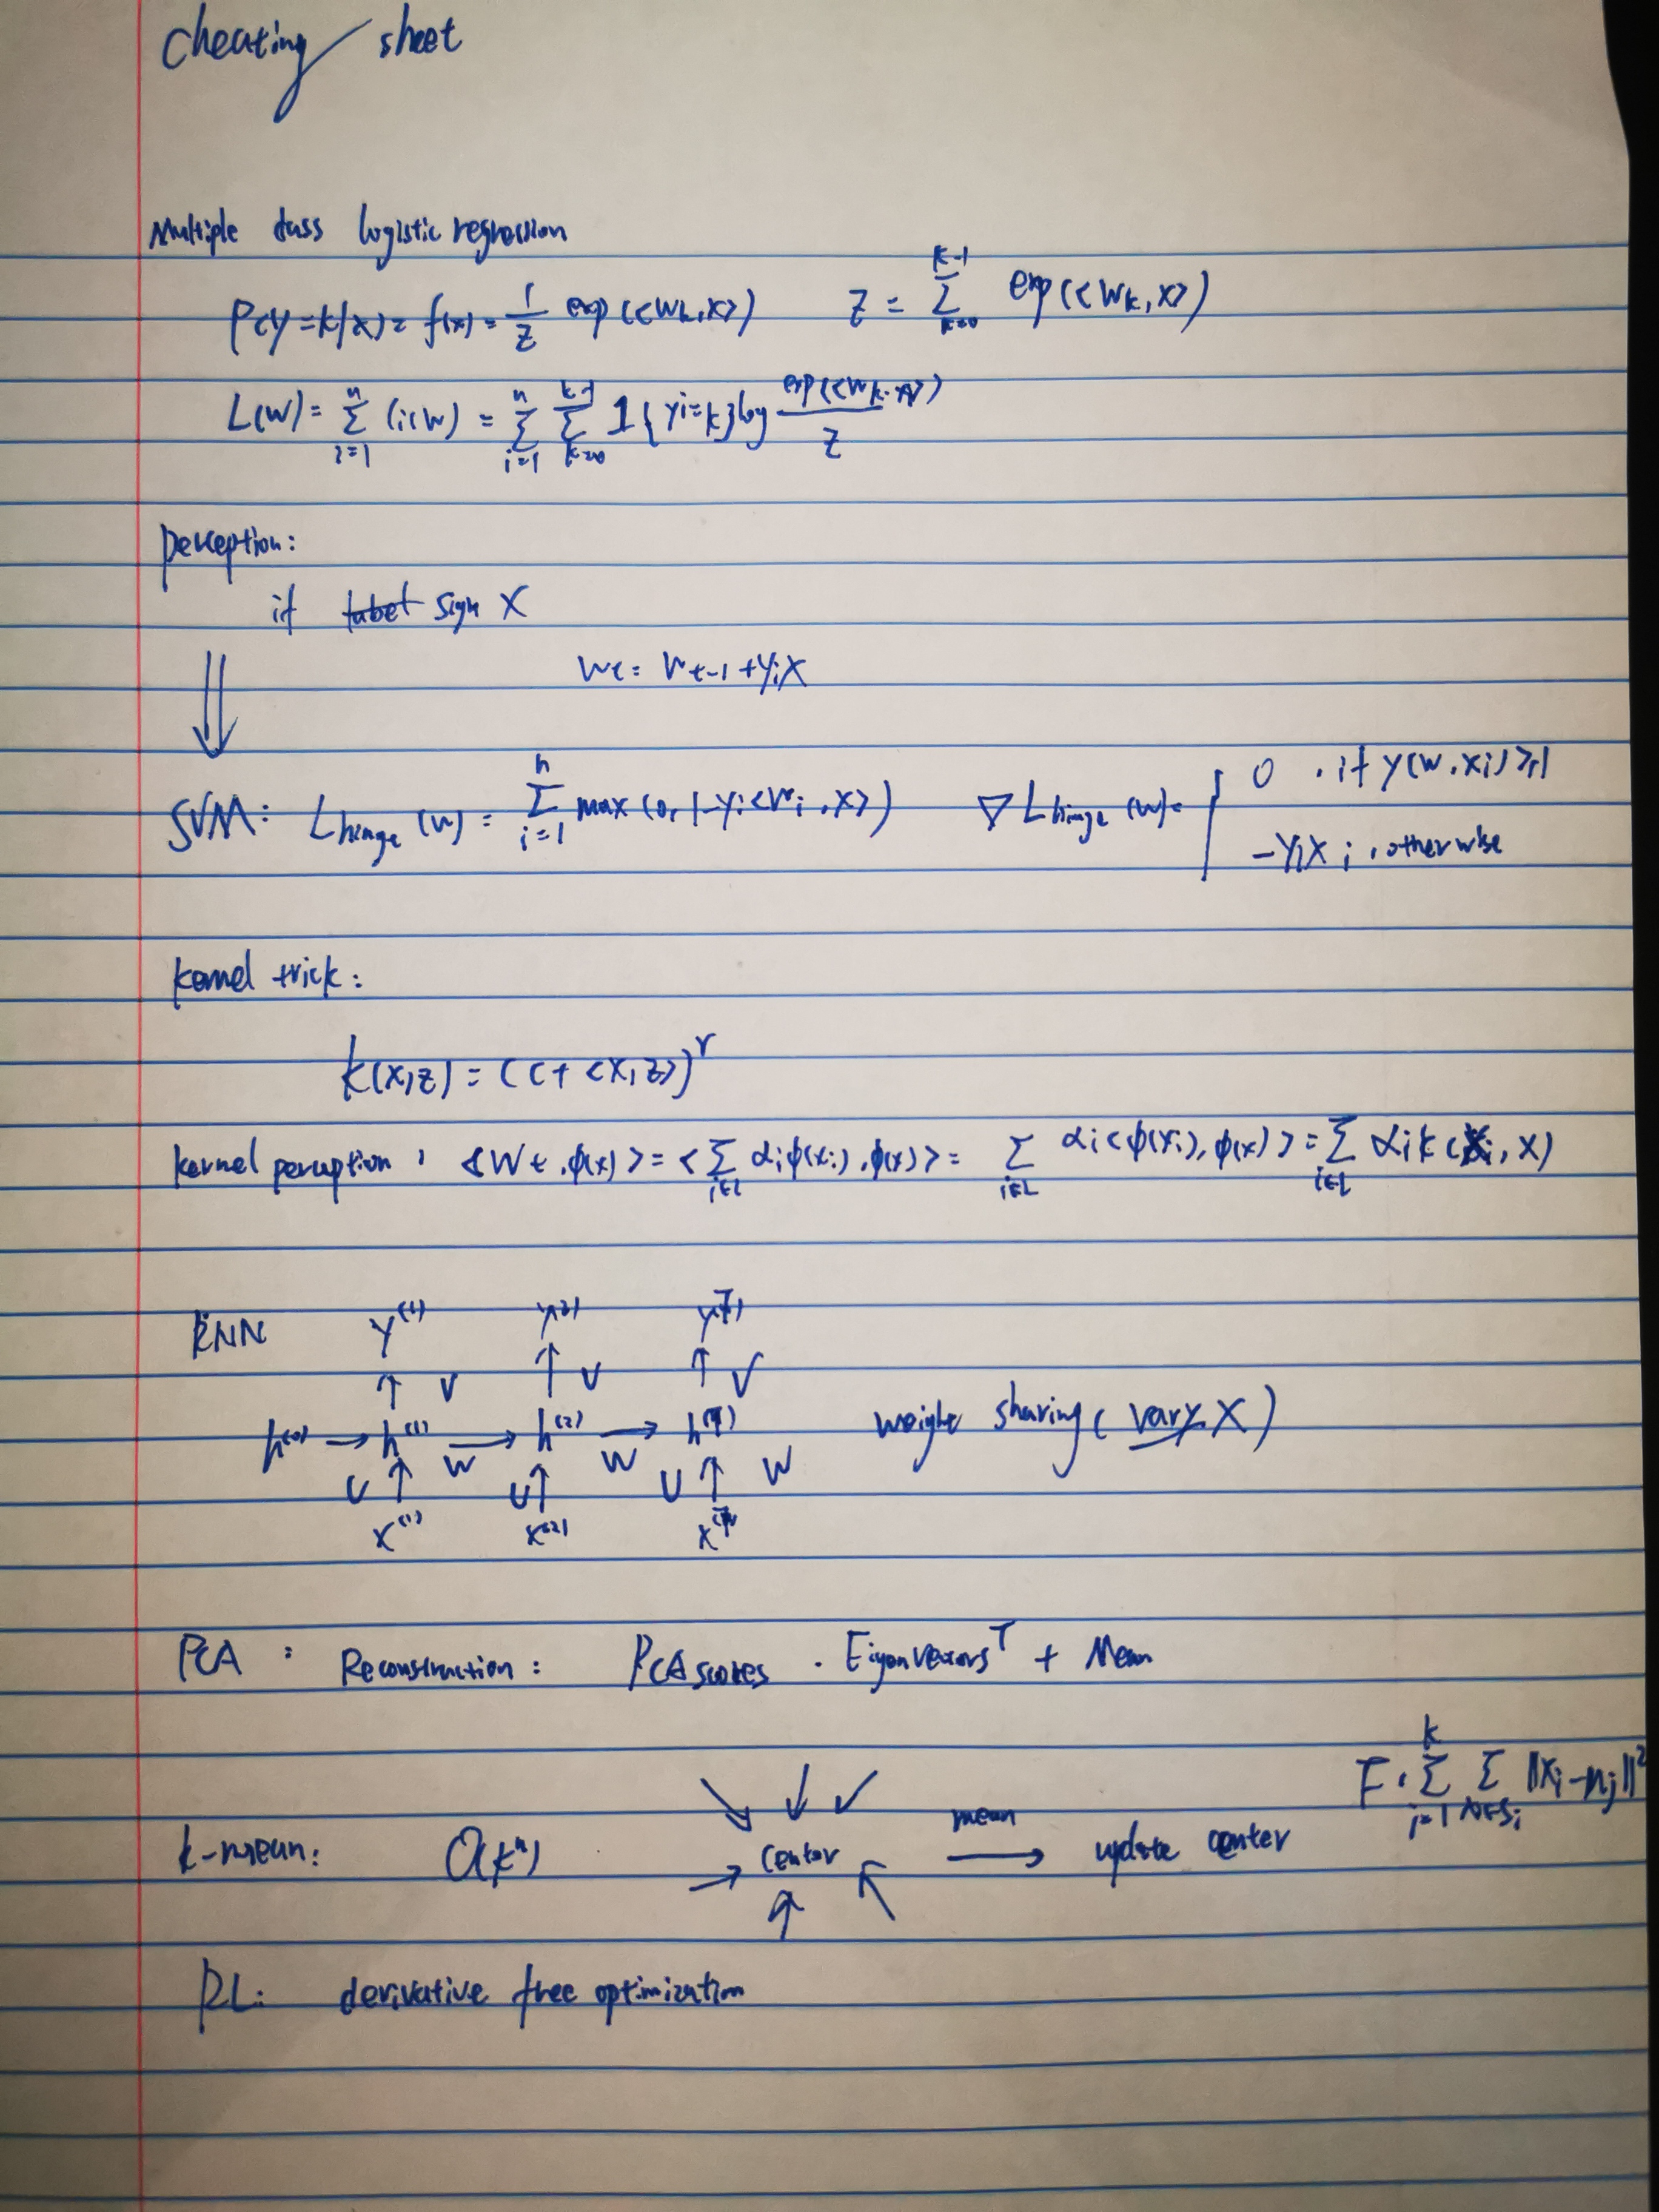 Cheating sheet
Multiple class logistic regression
P(y=k|x) = f(x) = 1/Z exp(<wk,x>)    Z = Σ_{k=0}^{k-1} exp(<wk,x>)
L(w) = Σ_{i=1}^{n} li(w) = Σ_{i=1}^{n} Σ_{k=0}^{k-1} 1{yi=k} log exp(<wk,x>)/Z
perception:
if sign X
wt = wt-1 + yiX
⇓
SVM: Lhinge(w) = Σ_{i=1}^{n} max(0, 1-yi<wi,x>)    ∇Lhinge(w) = { 0 , if y(w,xi) ≥ 1
-yixi , otherwise
kernel trick:
k(x,z) = (c+<x,z>)^r
kernel perception: <wt,φ(x)> = <Σ_{i∈L} αiφ(xi),φ(x)> = Σ_{i∈L} αi<φ(xi),φ(x)> = Σ_{i∈L} αik(xi,x)
RNN    y^(1)    y^(2)    y^(T)
↑ V    ↑ V    ↑ V
h^(0) → h^(1) → h^(2) → h^(T)    weight sharing (vary X)
U ↑ W    U ↑ W    U ↑ W
x^(1)    x^(2)    x^(T)
PCA : Reconstruction: PCA scores · Eigenvectors^T + Mean
F = Σ_{i=1}^{k} Σ ||xi-μj||²
k-mean: O(k^n)    center → mean update center
RL: derivative free optimization